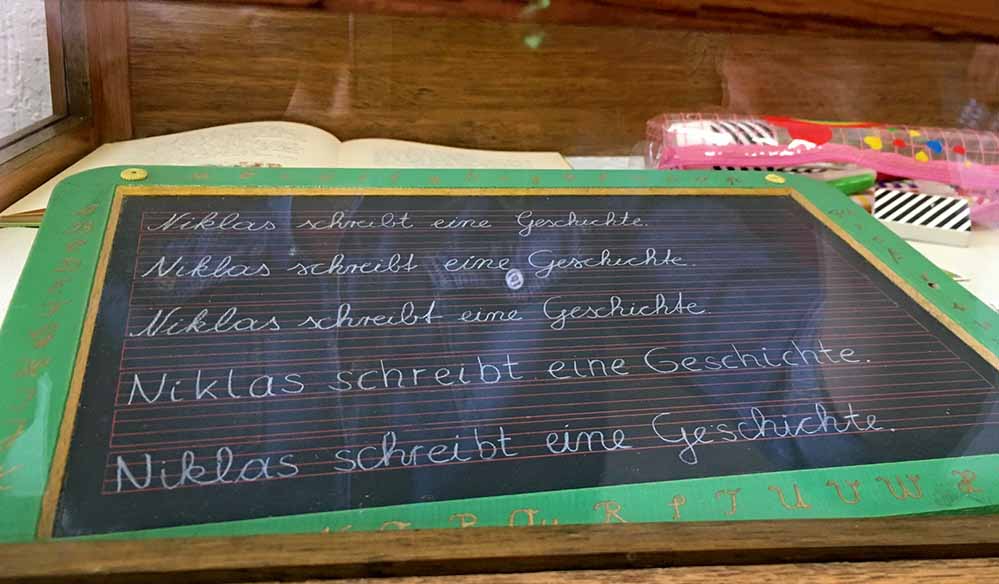 Niklas schreibt eine Geschichte.
Niklas schreibt eine Geschichte.
Niklas schreibt eine Geschichte.
Niklas schreibt eine Geschichte.
Niklas schreibt eine Geschichte.
R S T U V W X